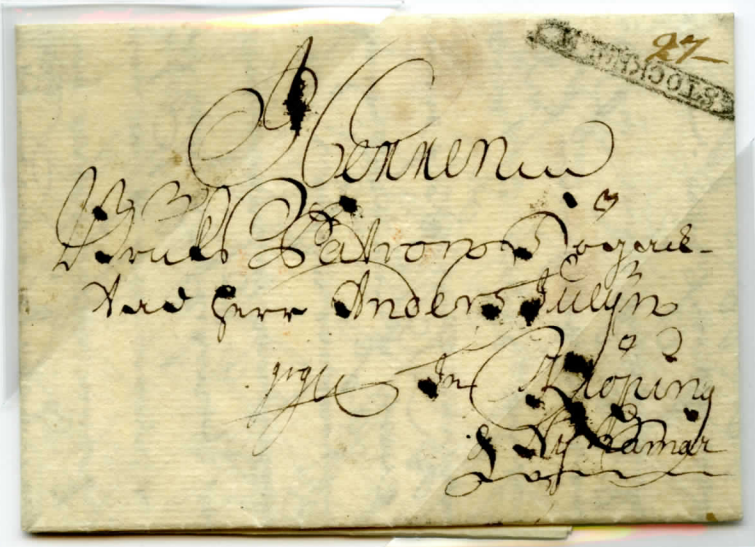 STOCKHOLM
27
Herren
Bruks Patron Högac-
tad herr Anders Julijn
In Kiöping
& Ny Hamar